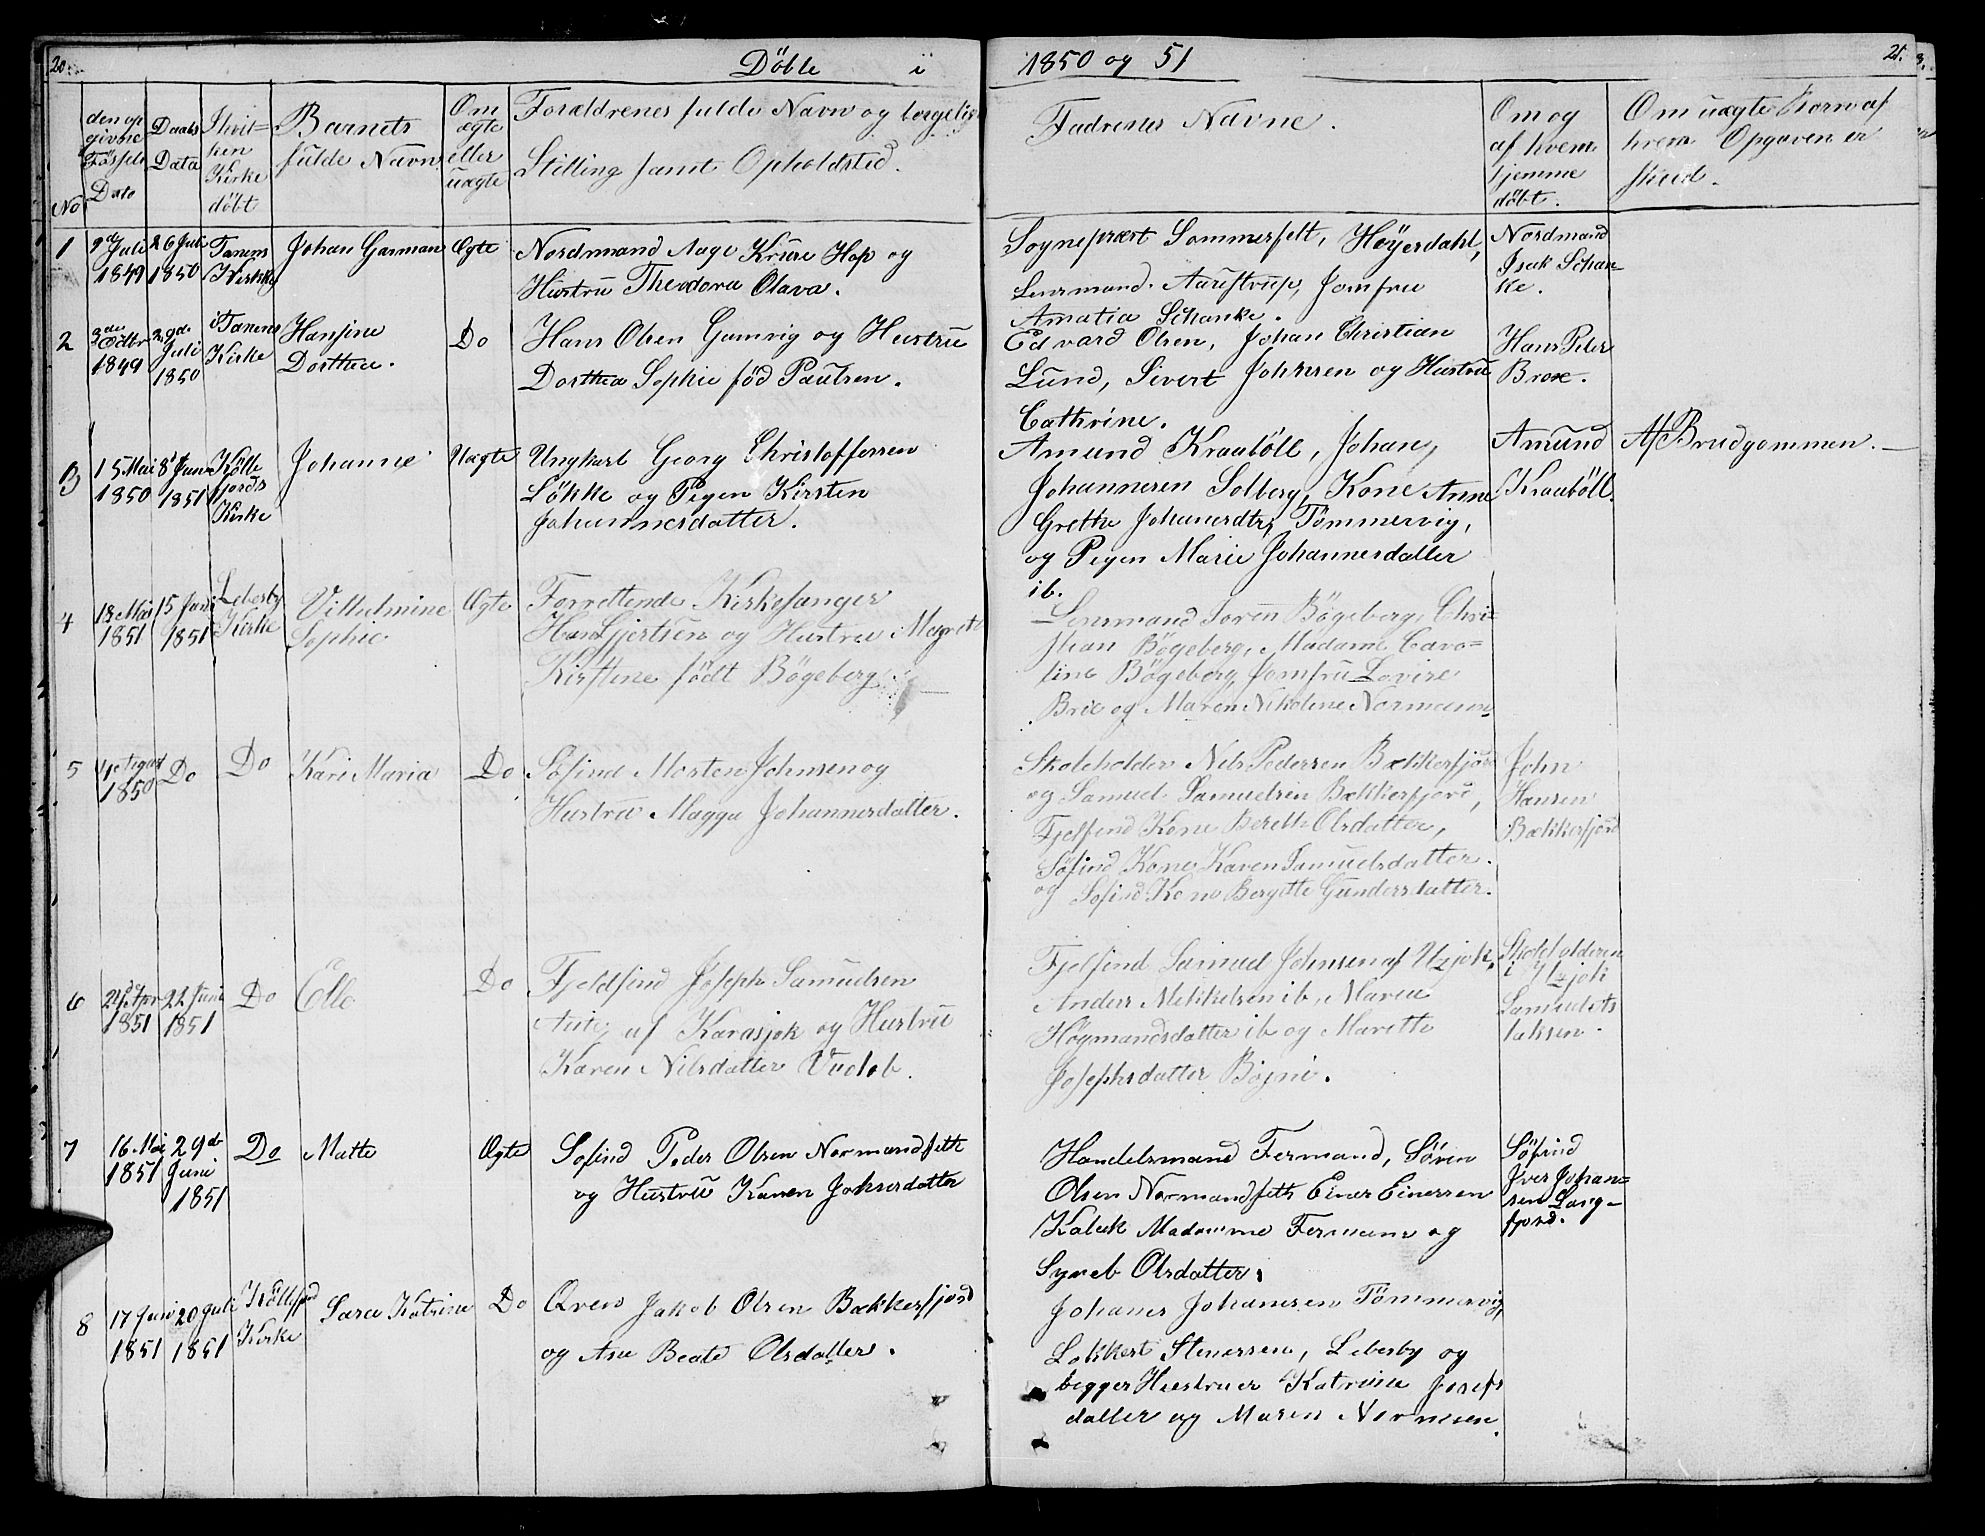 20. Döbte i 1850 og 51 21.
No
den opgivne Fødsels Dato
Daabs Data
I hvilken Kirke döbt
Barnets fulde Navn
Om ægte eller uægte
Forældrenes fulde Navn og borgelig Stilling samt Opholdsted.
Fadrenes Navne.
Om og af hvem hjemme döbt.
Om uægte Børn af hvem Opgaven er skeed.
1
9de Juli 1849
26 Juli 1850
Tanens Kirke
Johan Garman
Ægte
Nordmand Aage Kruse Hop og
Hustru Theodora Olava.
Sogneprest Sommerfelt, Höyerdahl,
Lensmand Aarestrup, Jomfru
Amatia Schanke.
Nordmand
Isak Schan-
ke.
2
3die Octbr 1849
28de Juli 1850
i Tanens Kirke
Hansine
Dorthea.
Do
Hans Olsen Gamvig og Hustru
Dorthea Sophie född Paulsen.
Edvard Olsen, Johan Christian
Lund, Sivert Johnsen og Hustru
Cathrine.
Hans Peter
Broxe.
3
15 Mai 1850
8 Juni 1851
Kjöllefjords Kirke
Johanne
Uægte
Ungkarl Georg Christoffersen
Lökke og Pigen Kirsten
Johannesdatter.
Amund Kraaböll, Johan
Johannesen Solberg, Kone Anne
Grethe Johanesdtr, Tömmervig,
og Pigen Marie Johannesdatter
ib.
Amund
Kraaböll.
Af Brudgommen.
4
18 Mai 1851
15 Juni 1851
Lebesby Kirke
Vilhelmine
Sophie
Ægte
Forrettende Kirkesanger
Hans Gjertsen og Hustru Magret
Kirstine födt Bögeberg.
Lensmand Sören Bögeberg, Chri-
stian Bögeberg, Madame Caro-
line Bögeberg, Jomfru Lovise
Brie og Maren Nikoline Normann.
5
August 1850
Do
Do
Kari Maria
Do
Söfind Morten Johnsen og
Hustru Magga Johannesdatter.
Skoleholder Nils Pedersen Bækkerfjord
og Samuel Samuelsen Bækkerfjord,
Fjelfind Kone Bereth Olsdatter,
Söfind Kone Karen Samuelsdatter.
og Söfind Kone Bergitte Gundersdatter.
John
Hansen
Bækkerfjord
6
Apr 1851
22 Juni 1851
Do
Elle
Do
Fjeldfind Joseph Samuelsen
af Karasjok og Hustru
Karen Nilsdatter Vuolab.
Fjelfind Samuel Johnsen af Utzjok,
Anders Mikkelsen ib, Maren
Högmandsdatter ib og Marette
Josephsdatter Bigni.
Skoleholderen
i Utzjok
Samuel
Isaksen.
7
16. Mai 1851
29de Juni 1851
Do
Matte
Ægte
Sofind Peder Olsen Normandseth
og Hustru Karen Johnsdatter
Handelsmand Fermand, Sören
Olsen Normandseth Einer Einersen
Kalak Madamme Fermann og
Syneb Olsdatter.
Söfind
Iver Johan-
sen Lang-
fjord.
8
17 Juni 1851
20 Juli 1851
Kjöllefjord Kirke
Sara Katrine
Do
Qven Jakob Olsen Bækkerfjord
og Ane Beate Olsdatter.
Johanes Johanesen Tömmervig,
Lokkert Stenersen, Lebesby og
begges Hustruer Katrine Josefs
datter og Maren